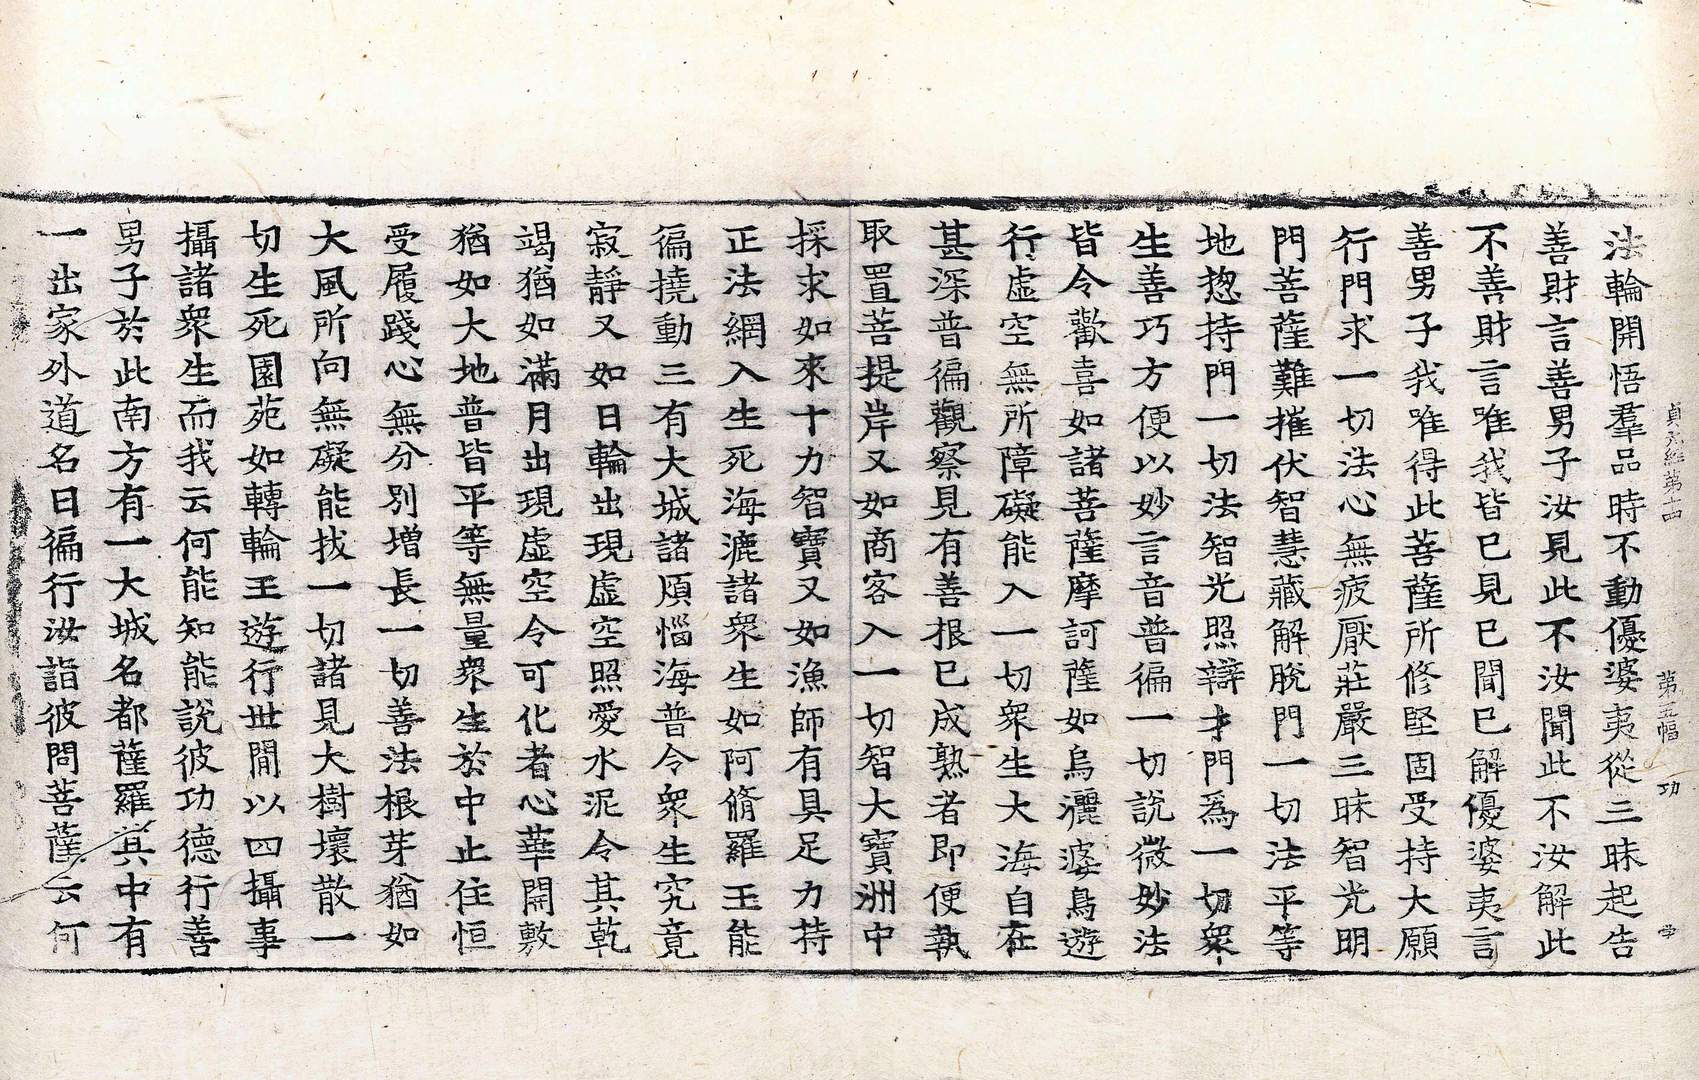 貞元經第十四 第五幅 功
法輪開悟羣品時不動優婆夷從三昧起告
善財言善男子汝見此不汝聞此不汝解此
不善財言唯我皆已見已聞已解優婆夷言
善男子我唯得此菩薩所修堅固受持大願
行門求一切法心無疲厭莊嚴三昧智光明
門菩薩難摧伏智慧藏解脫門一切法平等
地惣持門一切法智光照辯才門爲一切衆
生善巧方便以妙言音普徧一切說微妙法
皆令歡喜如諸菩薩摩訶薩如烏灑婆鳥遊
行虛空無所障礙能入一切衆生大海自在
甚深普徧觀察見有善根已成熟者即便執
取置菩提岸又如商客入一切智大寶洲中
採求如來十力智寶又如漁師有具足力持
正法網入生死海漉諸衆生如阿脩羅王能
徧撓動三有大城諸煩惱海普令衆生究竟
寂靜又如日輪出現虛空照愛水泥令其乾
竭猶如滿月出現虛空令可化者心華開敷
猶如大地普皆平等無量衆生於中止住恒
受履踐心無分別增長一切善法根芽猶如
大風所向無礙能拔一切諸見大樹壞散一
切生死園苑如轉輪王遊行世間以四攝事
攝諸衆生而我云何能知能說彼功德行善
男子於此南方有一大城名都薩羅其中有
一出家外道名曰徧行汝詣彼問菩薩云何